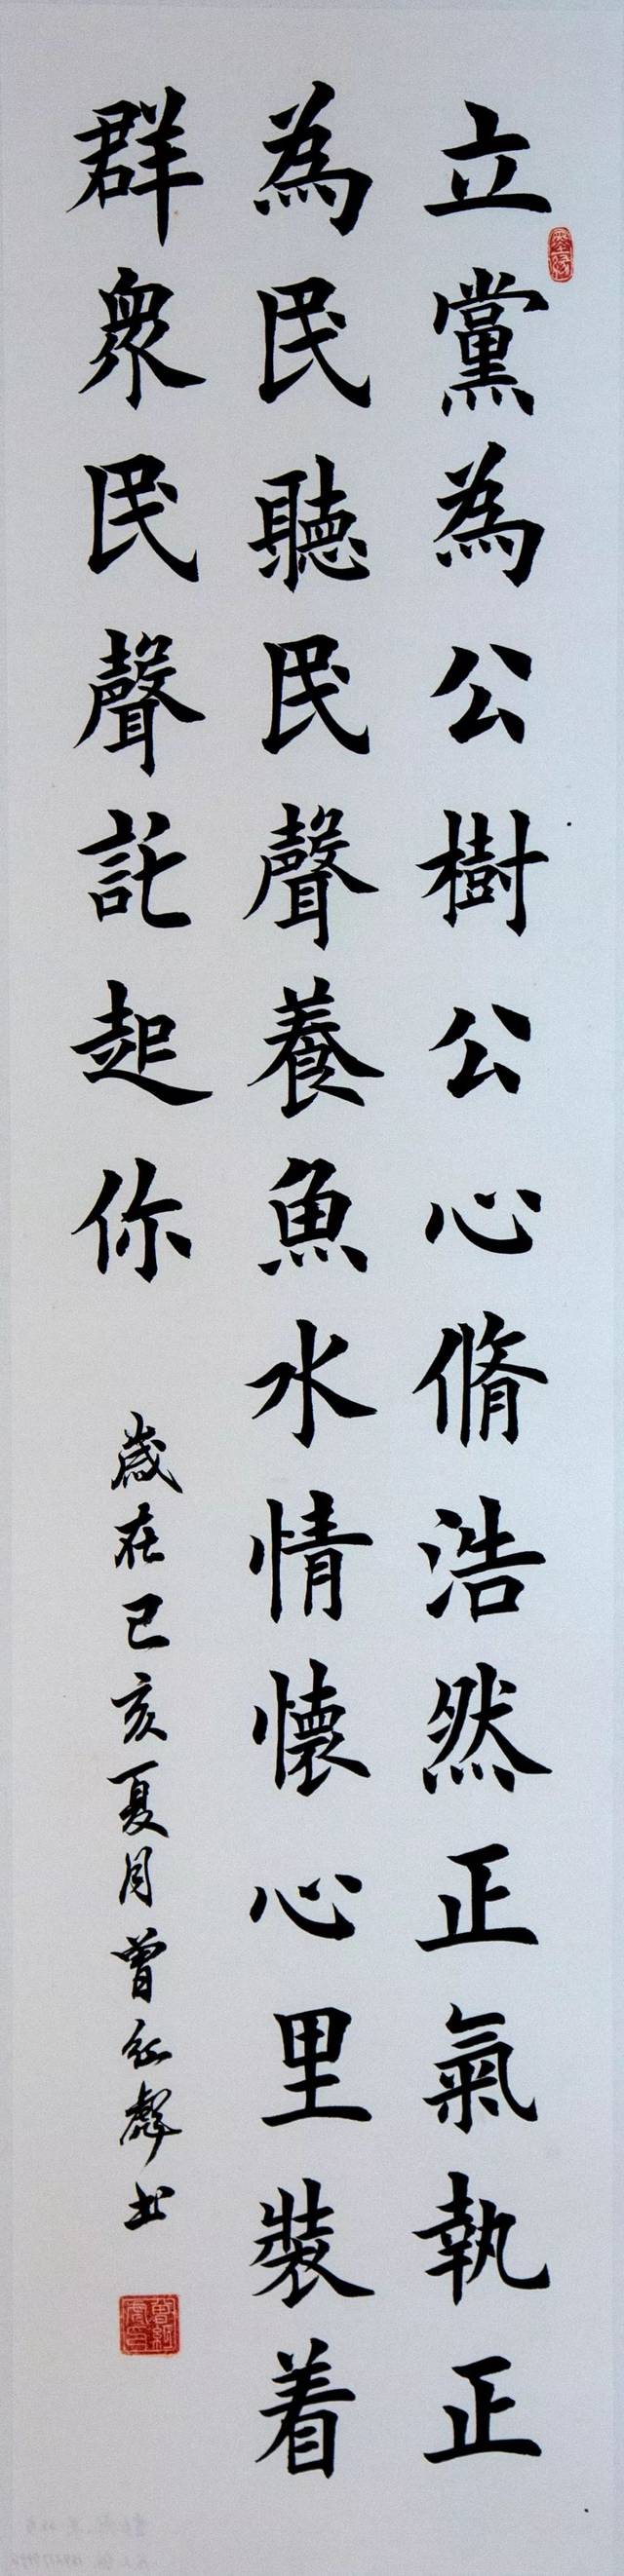 立黨為公樹公心脩浩然正氣執正
為民聽民聲養魚水情懷心里裝着
群衆民聲託起你
歲在己亥夏月曾紅彪书